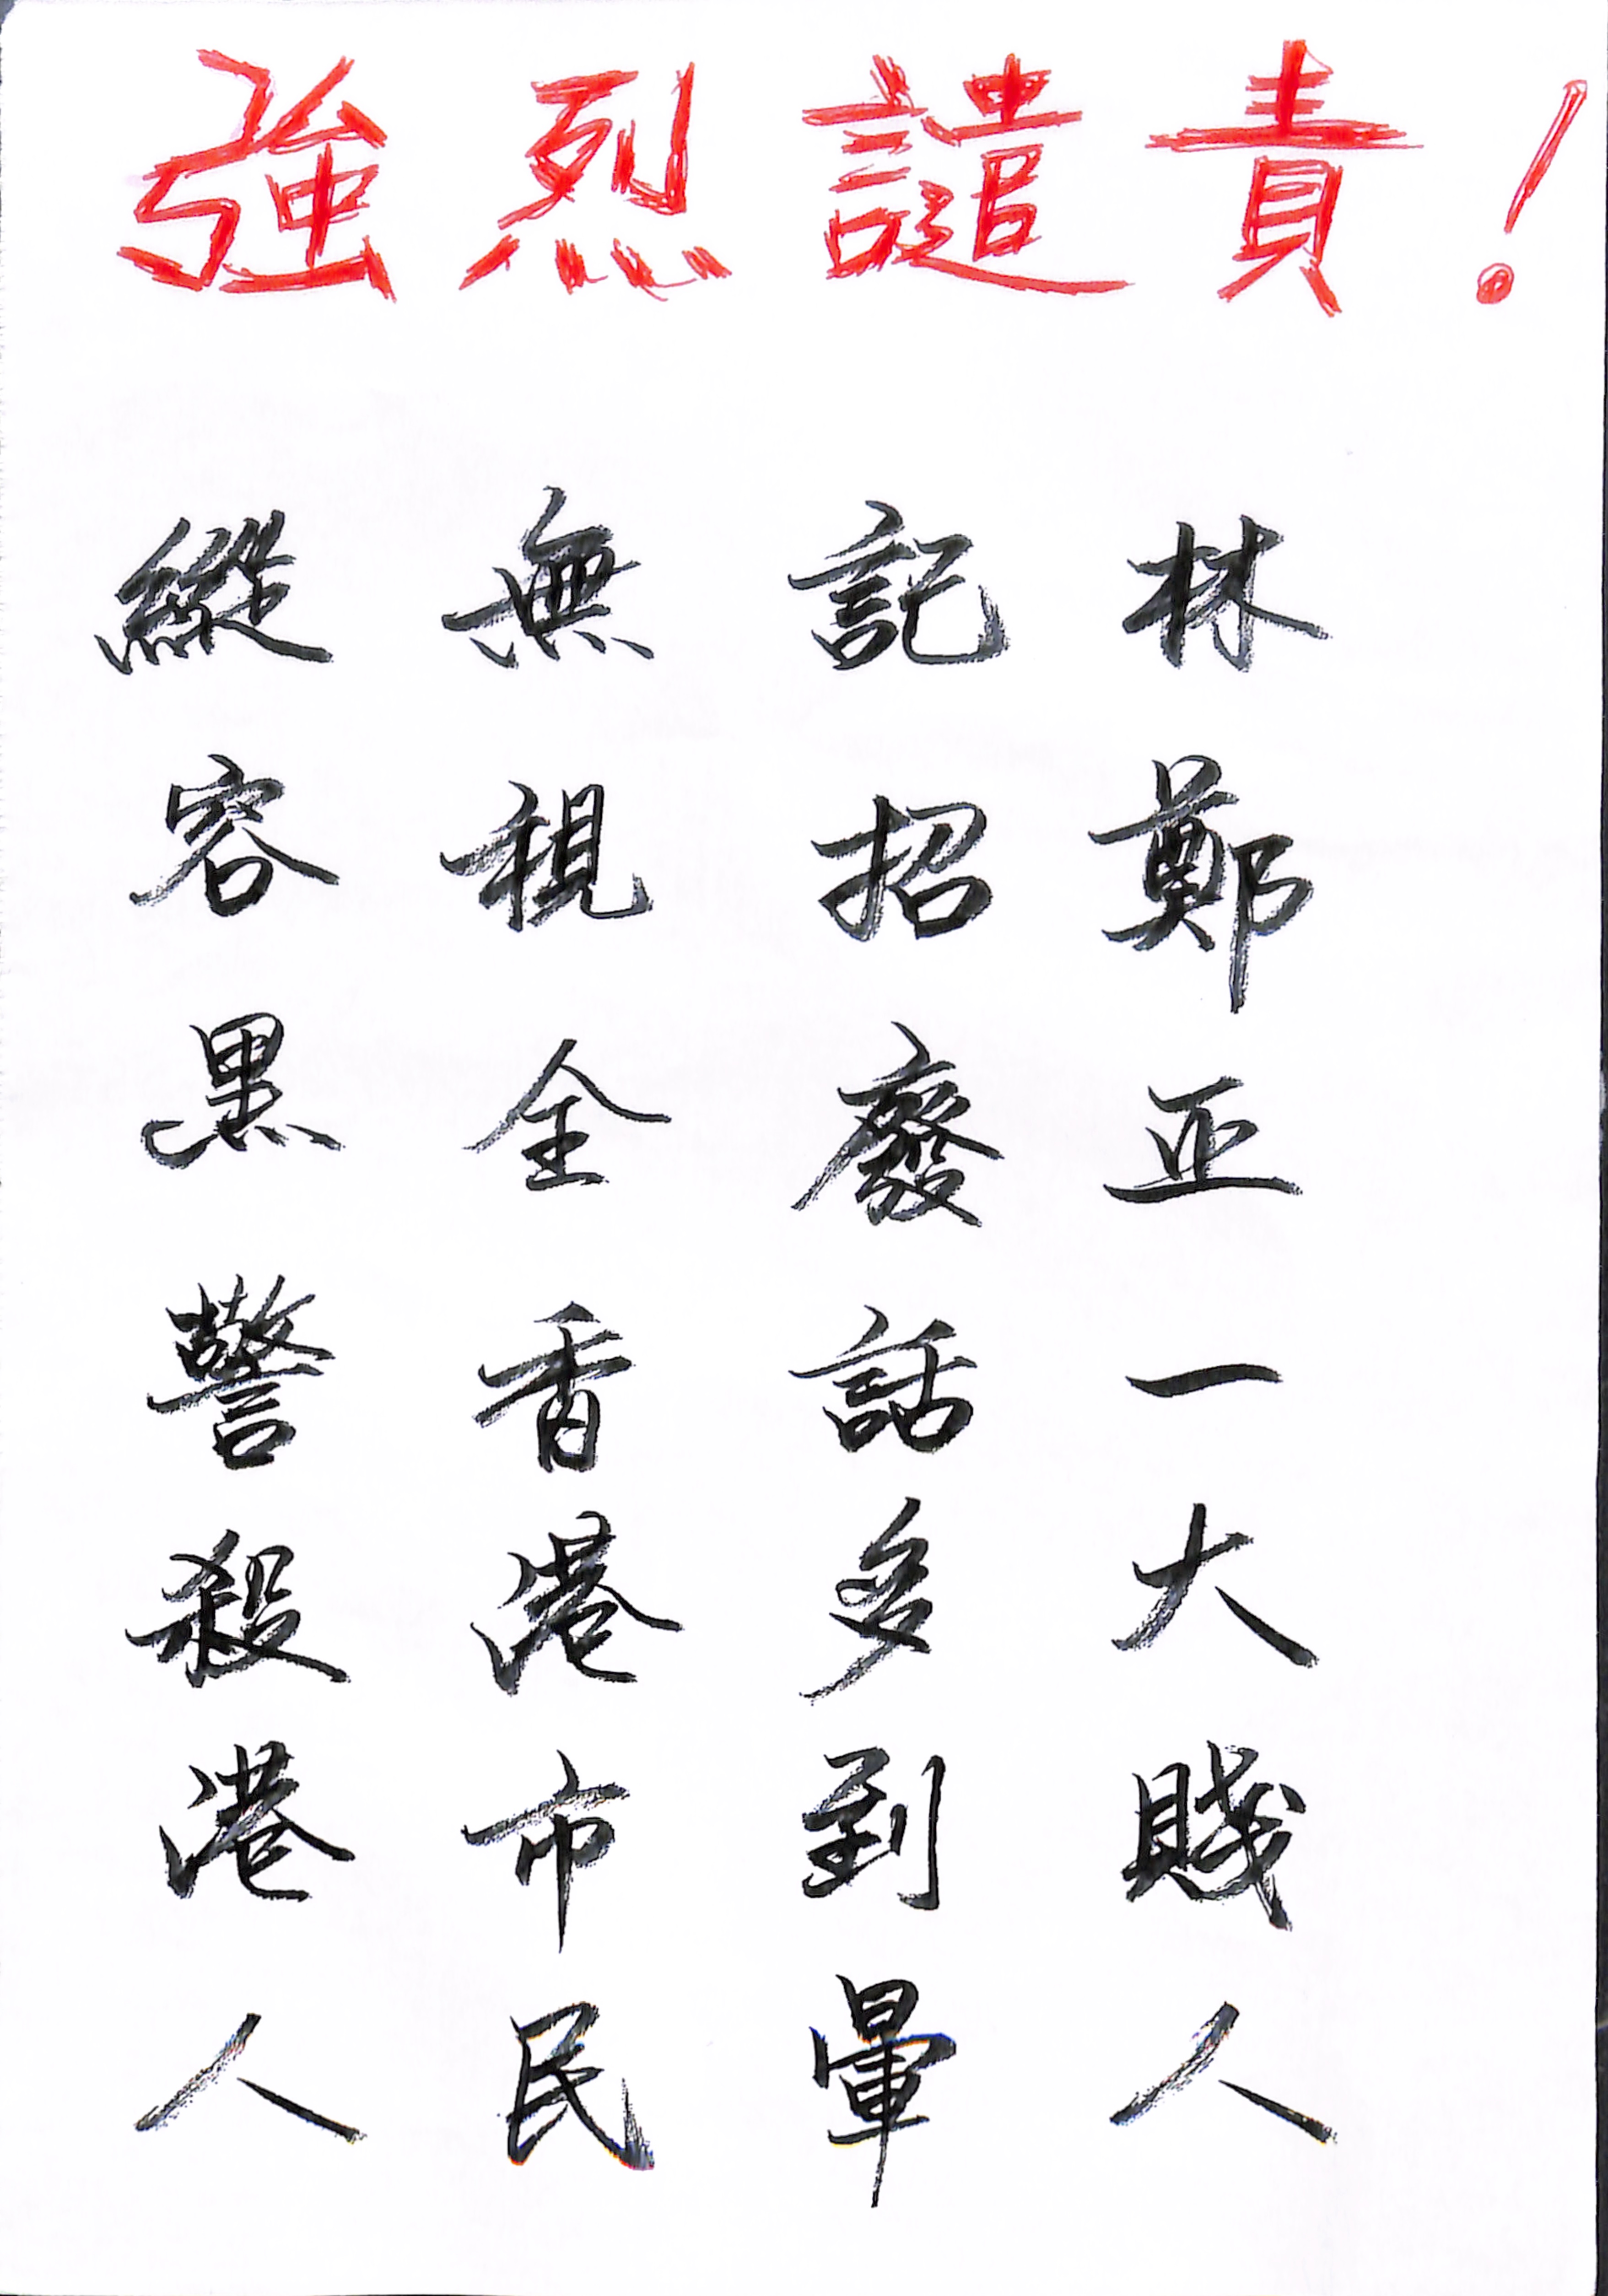 強烈譴責！
林鄭正一大賤人
記招廢話多到暈
無視全香港市民
縱容黑警殺港人